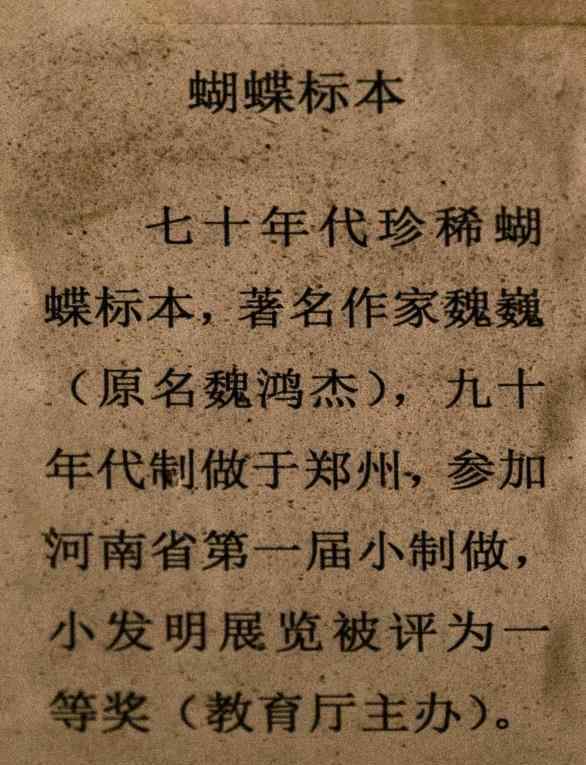 蝴蝶标本
七十年代珍稀蝴
蝶标本，著名作家魏巍
（原名魏鸿杰），九十
年代制做于郑州，参加
河南省第一届小制做，
小发明展览被评为一
等奖（教育厅主办）。